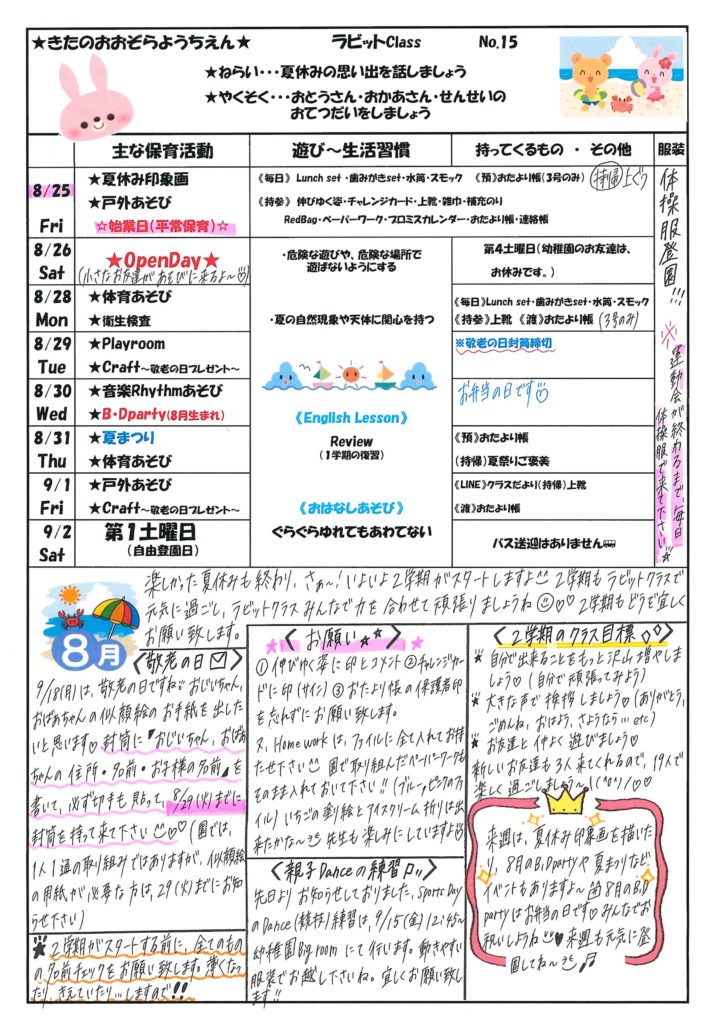 ★きたのおおぞらようちえん★ ラビットClass No.15
★ねらい・・・夏休みの思い出を話しましょう
★やくそく・・・おとうさん・おかあさん・せんせいの
おてつだいをしましょう
主な保育活動 遊び～生活習慣 持ってくるもの ・ その他 服装
8/25
Fri
★夏休み印象画
★戸外あそび
☆始業日(平常保育)☆
《毎日》 Lunch set ・歯みがきset・水筒・スモック 《預》おたより帳(3号のみ) 持帰 上ぐつ
《持参》 伸びゆく姿・チャレンジカード・上靴・雑巾・補充のり
RedBag・ペーパーワーク・プロミスカレンダー・おたより帳・連絡帳
体操服登園!!!
※運動会が終わるまで、毎日
体操服で来て下さい★
8/26
Sat
★OpenDay★
(小さなお友達があそびに来るよ～)
・危険な遊びや、危険な場所で
遊ばないようにする
第4土曜日(幼稚園のお友達は、
お休みです。)
8/28
Mon
★体育あそび
★衛生検査
・夏の自然現象や天体に関心を持つ
《毎日》Lunch set・歯みがきset・水筒・スモック
《持参》上靴 《渡》おたより帳 (3号のみ)
8/29
Tue
★Playroom
★Craft～敬老の日プレゼント～
※敬老の日封筒締切
8/30
Wed
★音楽Rhythmあそび
★B・Dparty(8月生まれ)
お弁当の日です
《English Lesson》
Review
(1学期の復習)
8/31
Thu
★夏まつり
★体育あそび
《預》おたより帳
(持帰)夏祭りご褒美
9/1
Fri
★戸外あそび
★Craft～敬老の日プレゼント～
《おはなしあそび》
ぐらぐらゆれてもあわてない
《LINE》クラスだより(持帰)上靴
《渡》おたより帳
9/2
Sat
第1土曜日
(自由登園日)
バス送迎はありません
8月
楽しかった夏休みも終わり、さぁ～!いよいよ2学期がスタートしますよ 2学期もラビットクラスで
元気に過ごし、ラビットクラスみんなで力を合わせて頑張りましょうね♡♡ 2学期もどうぞ宜しく
お願い致します。
〈敬老の日〉
9/18(月)は、敬老の日ですね おじいちゃん、
おばあちゃんの似顔絵のお手紙を出した
いと思います♡ 封筒に『おじいちゃん、おばあ
ちゃんの住所・名前・お子様の名前』を
書いて、必ず切手も貼って、8/29(火)までに
封筒を持って来て下さい ♡♡ (園では、
1人1通の取り組みではありますが、似顔絵
の用紙が、必要な方は、29(火)までにお知
らせ下さい)
★2学期がスタートする前に、全てのもの
の名前チェックをお願い致します。薄くなっ
たり、きえていたり…しますので!!
〈お願い☆★〉
①伸びゆく姿に印とコメント ②チャレンジカー
ドに印(サイン) ③おたより帳の保護者印
を忘れずにお願い致します。
又、Home workは、ファイルに全て入れてお持
たせ下さい 園で取り組んだペーパーワークも
そのまま入れておいて下さい!!(ブルー,ピンクのファ
イル) いちごの塗り絵とアイスクリーム折りは出
来たかな～ 先生も楽しみにしていますよ♡
〈親子Danceの練習♫〉
先日よりお知らせしておりました、Sports Day
のDance(競技)練習は、9/15(金)12:45～
幼稚園Big roomにて行います。動きやすい
服装でお越し下さいね。宜しくお願い致し
ます!!
〈2学期のクラス目標◇◇〉
★自分で出来ることをもっと沢山増やしま
しょう♡(自分で頑張ってみよう)
★大きな声で挨拶しましょう♡(ありがとう、
ごめんね、おはよう、さようなら…etc)
★お友達と仲よく遊びましょう♡
新しいお友達も3人来てくれるので、19人で
楽しく過ごしましょう～!
来週は、夏休み印象画を描いた
り、8月のB,Dpartyや夏まつりなど、
イベントもありますよ～ 8月のB,D
partyはお弁当の日です♡みんなでお
祝いしようね♥来週も元気に登
園してね～♬